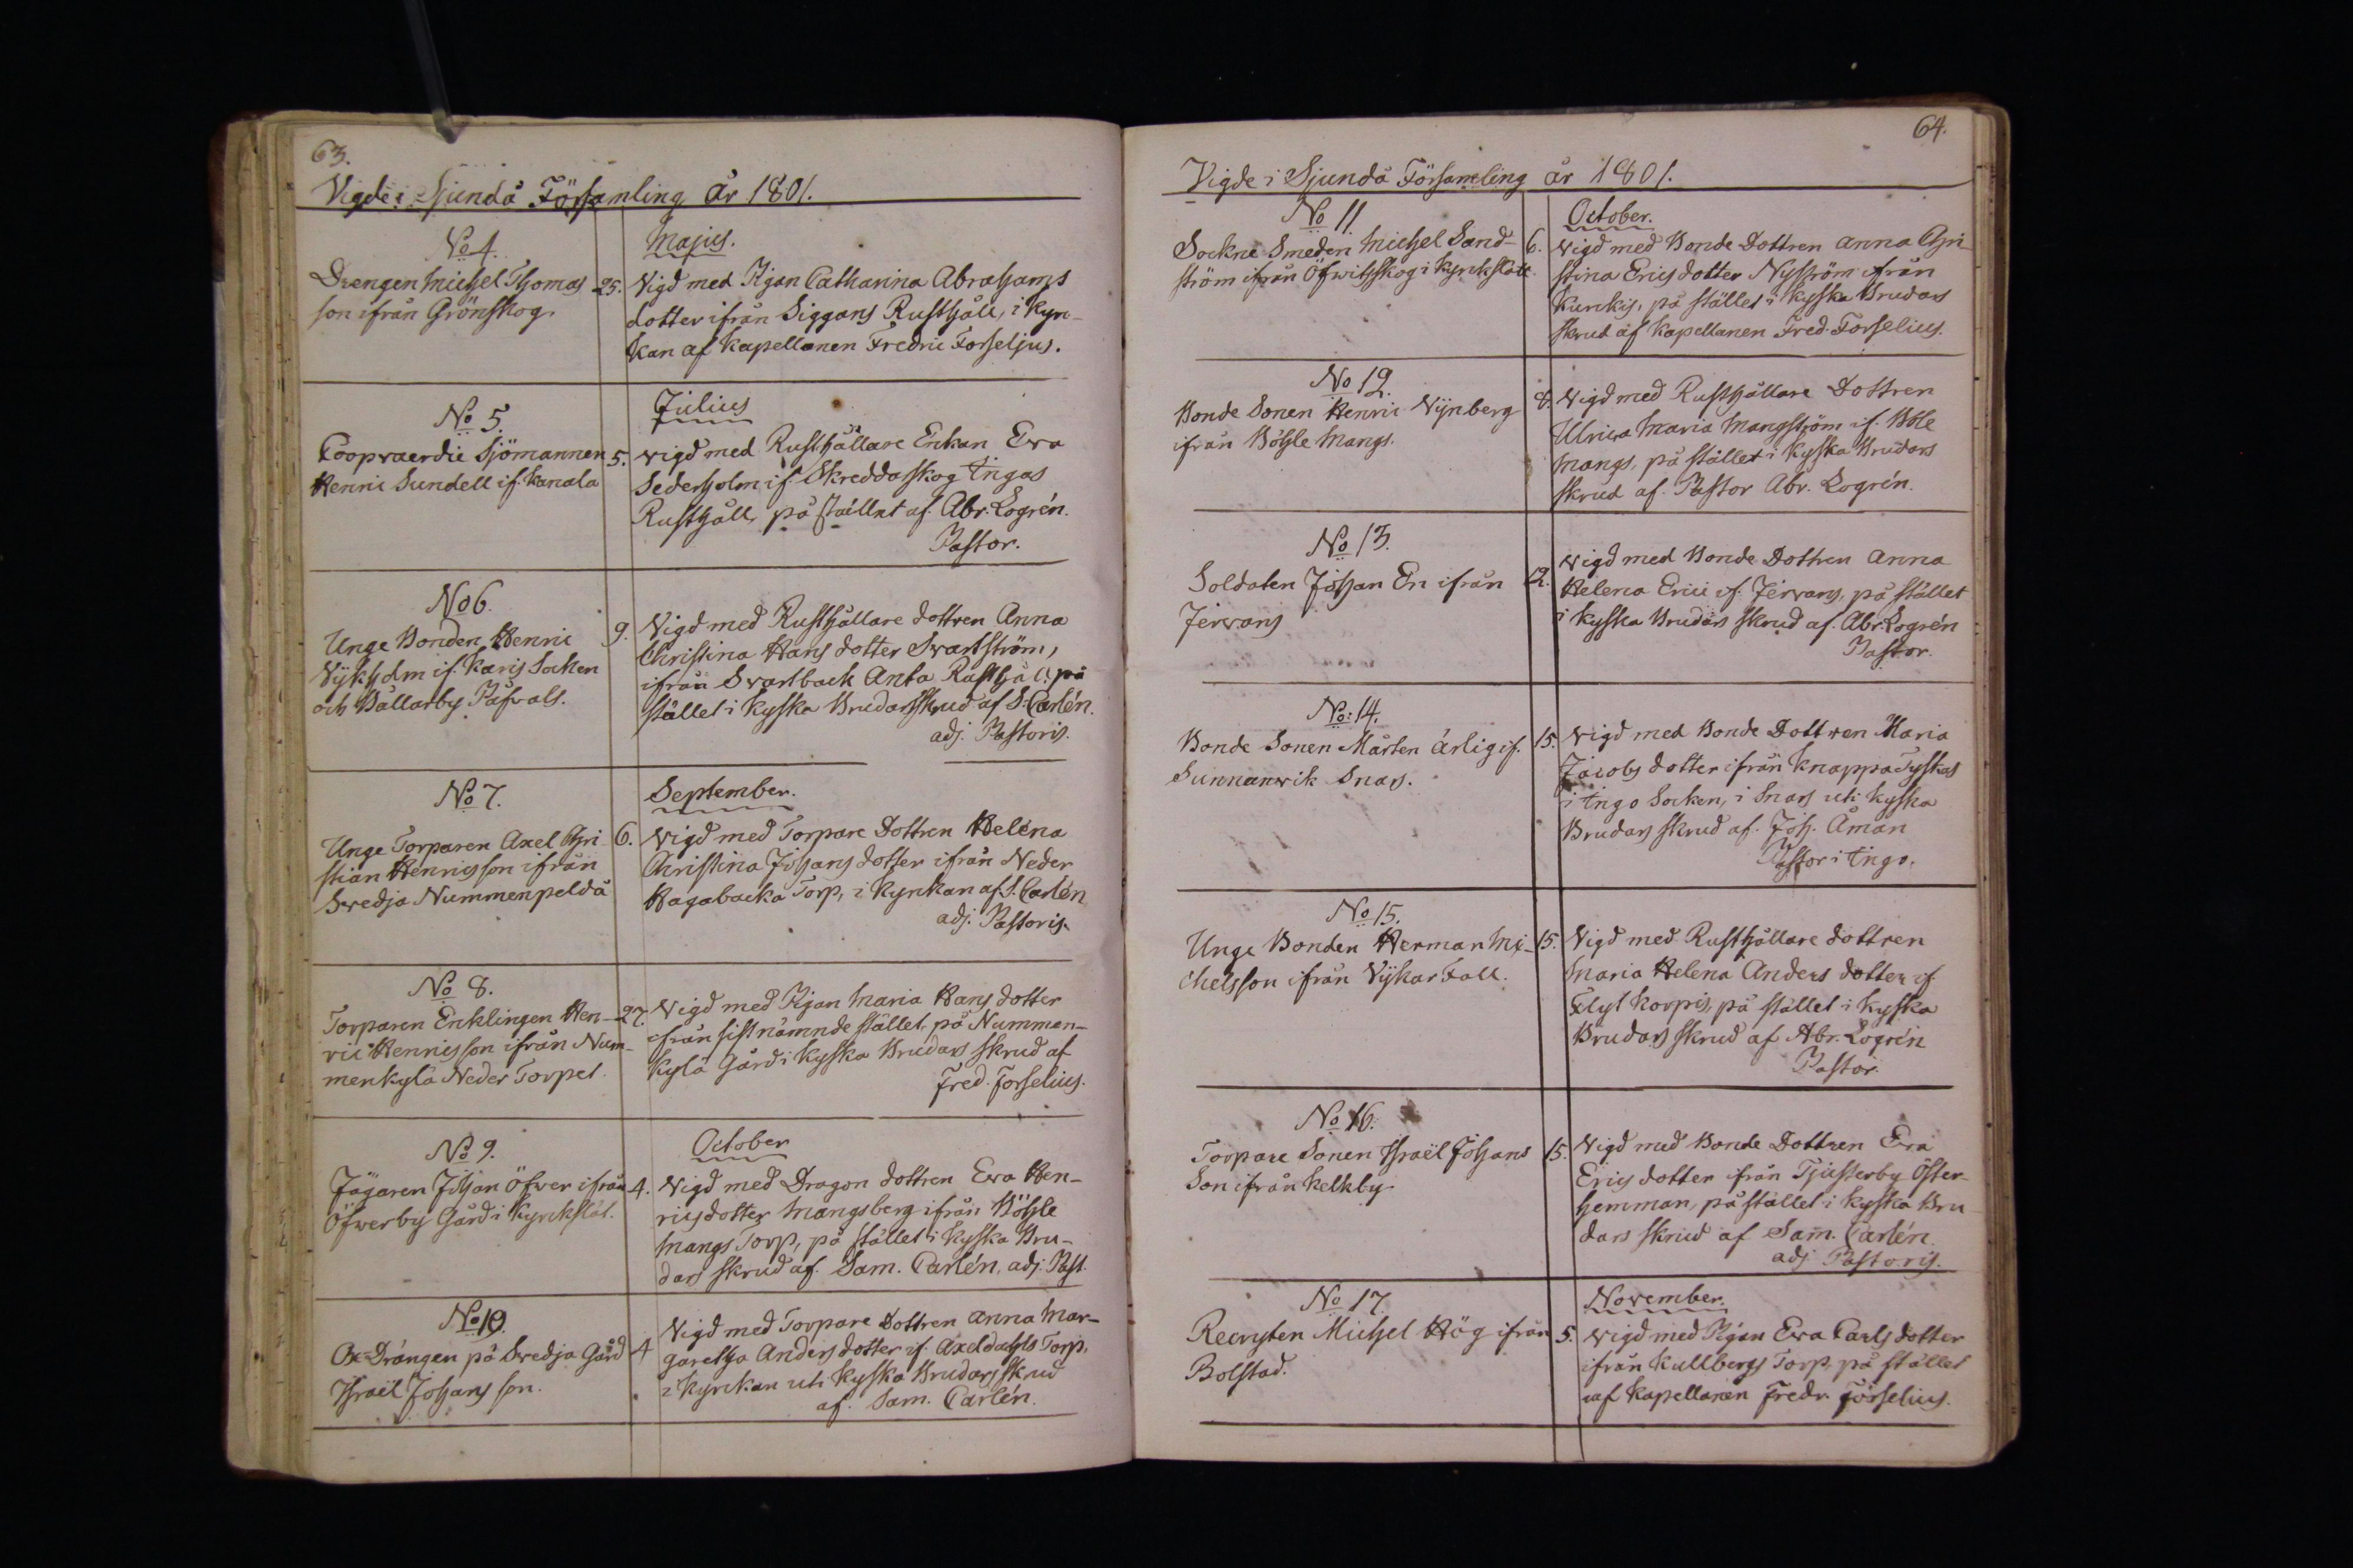 63.
Vigde i Sjundå Församling År 1801.
No 4.
Majus.
Drengen Michel Thomas
son ifrån Grönskog.
25. Vigd med Pigan Catharina Abrahams
dotter ifrån Siggans Rusthåll, i Kyr-
kan af Kapellanen Fredric Forseljus.
No 5.
Julius
Coopvaerdie Sjömannen
Henric Sundell if. Kanala
5. vigd med Rusthållare Enkan Eva
Sederholm if. Skreddaskog Ingas
Rusthåll, på stället af Abr. Logrén.
Pastor.
No 6.
Unge Bonden Henric
Vykholm if. Karis Socken
och Bällarby Påfvals.
9. Vigd med Rusthållare dottren Anna
Christina Hans dotter Svartström,
ifrån Svartback Anta Rusthåll, på
stället i kyska Brudars skrud af S. Carlén.
adj. Pastoris.
No 7.
September.
Unge Torparen Axel Chri-
stian Henricsson ifrån
Svedja Nummenpeldå
6. Vigd med Torpare Dottren Heléna
Christina Johans dotter ifrån Neder
Hagabacka Torp, i Kyrkan af S. Carlén
adj. Pastoris.
No 8.
Torparen Enklingen Hen-
ric Henricsson ifrån Num-
menkylä Neder Torpet.
27. Vigd med Pigan Maria Hans dotter
ifrån sistnämnde stället, på Nummen-
kylä Gård i kyska Brudars skrud af
Fred. Forselius.
No 9.
October
Jägaren Johan Öfver ifrån
Öfverby Gård i Kyrkslät.
4. Vigd med Dragon dottren Eva Hen-
ricsdotter Mangsberg ifrån Böhle
Mangs Torp, på stället i kyska Bru-
dars skrud af. Sam. Carlén, adj. Past.
No 10.
Ox-Drängen på Svedja Gård
Israël Johans son.
4 Vigd med Torpare Dottren Anna Mar-
garetha Anders dotter if. Axeldahls Torp,
i Kyrkan uti kyska Brudars skrud
af. Sam. Carlén.
64.
Vigde i Sjundå Församling år 1801.
No 11.
October.
Sockne Smeden Michel Sand-
ström ifrån Öfwitsskog i Kyrkslätt.
6. Vigd med Bonde Dottren Anna Chri-
stina Erics dotter Nyström ifrån
Kunkis, på stället i kyska Brudars
skrud af Kapellanen Fred. Forselius.
No 12.
Bonde Sonen Henric Nynberg
ifrån Böhle Mangs.
8. Vigd med Rusthållare Dottren
Ulrica Maria Mangström if. Böle
Mangs, på stället i kyska Brudars
skrud af. Pastor Abr. Logrén.
No 13.
Soldaten Johan En ifrån
Jervans
12. Vigd med Bonde Dottren Anna
Helena Erici if. Jervans, på stället
i kyska Brudars skrud af. Abr. Logrén
Pastor.
No: 14.
Bonde Sonen Mårten Ärlig if.
Sunnanvik Snars.
15. Vigd med Bonde Dottren Maria
Jacobs dotter ifrån Knappa Tyskas
i Ingo Socken, i Snars uti kyska
Brudars skrud af. Joh. Åman
Pastor i Ingo.
No 15.
Unge Bonden Herman Mi-
chelsson ifrån Vykar Fall.
15. Vigd med Rusthållare dottren
Maria Helena Anders dotter if
Flyt Korpis, på stället i kyska
Brudars skrud af Abr. Logrén
Pastor.
No 16.
Torpare Sonen Israël Johans
Son ifrån Kelkby.
15. Vigd med Bonde Dottren Eva
Erics dotter ifrån Tjusterby Öster-
hemman, på stället i kyska Bru-
dars skrud af Sam. Carlén.
adj. Pastoris.
No 17.
November.
Recryten Michel Hög ifrån
Bolstad.
5. vigd med Pigan Eva Carls dotter
ifrån Kullbergs Torp, på stället
af Kapellanen Fredr. Forselius.